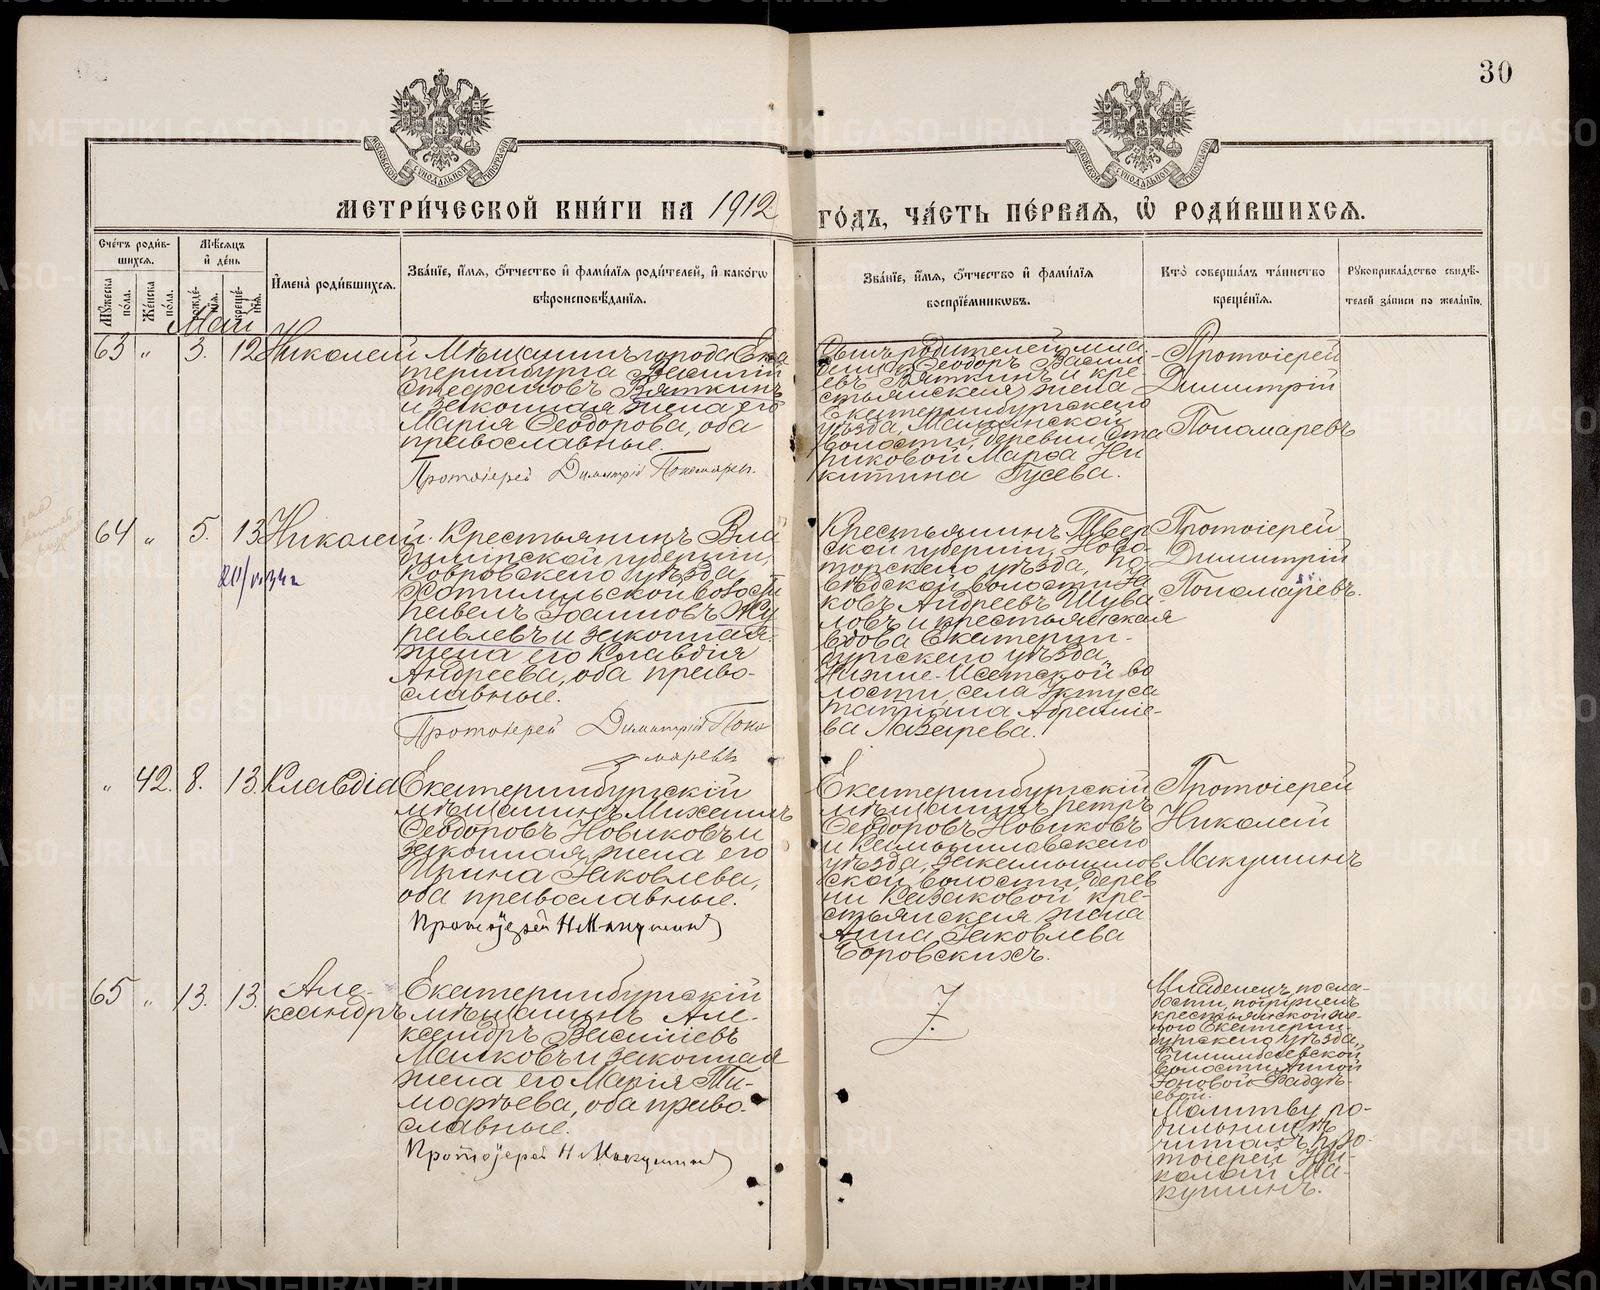 30
МЕТРИ́ЧЕСКОЙ КНИ́ГИ НА 1912 ГО́ДЪ, ЧА́СТЬ ПЕ́РВАЯ, Ѡ҆ РОДИ́ВШИХСЯ.
Сче́тъ роди́в-
шихся.
Му́жеска по́ла.
Же́нска по́ла.
Мѣ́сяцъ
и҆ де́нь
рожде́-
нїя.
креще́-
нїя.
И҆мена̀ роди́вшихся.
Зва́нїе, и҆́мя, ѻ҆́тчество и҆ фами́лїя роди́телей, и҆ како́гѡ
вѣроисповѣ́данїя.
Зва́нїе, и҆́мя, ѻ҆́тчество и҆ фами́лїя
воспрїе́мниковъ.
Кто̀ соверша́лъ та́инство
креще́нїя.
Рꙋкоприкла́дство свидѣ́-
телей за́писи по жела́нїю.
Май
63 „ 3. 12 Николай
Мѣщанинъ города Ека
теринбурга Василій
Стефановъ Вяткинъ
и законная жена его
Марія Ѳеодорова, оба
православные.
Протоіерей Димитрій Пономаревъ
Сынъ родителей мла
денца Ѳеодоръ Васили
евъ Вяткинъ и кре
стьянская жена
Екатеринбургскаго
уѣзда,
волости, деревни
Марѳа Ни
китина Гусева.
Протоіерей
Димитрій
Пономаревъ
64 „ 5. 13 Николай.
Крестьянинъ Вла
димірской губерніи,
Ковровскаго уѣзда,
Хотимльской волости
Павелъ Іоанновъ Жу
равлевъ и законная
жена его Клавдія
Андреева, оба право-
славные.
Протоіерей Димитрій Поно
маревъ
Крестьянинъ Твер
ской губерніи, Ново
торжскаго уѣзда, По
вѣдской волости Іа
ковъ Андреевъ Шува
ловъ и крестьянская
вдова Екатерин-
бургскаго уѣзда
Нижне-Исетской во
лости, села Уктуса
Татіана Авраміе-
ва Лазарева.
Протоіерей
Димитрій
Пономаревъ.
„ 42. 8. 13. Клавдіа
Екатеринбургскій
мѣщанинъ Михаилъ
Ѳеодоровъ Новиковъ и
законная жена его
Ирина Іаковлева,
оба православные.
Протоіерей Н Макушинъ
Екатеринбургскій
мѣщанинъ Петръ
Ѳеодоровъ Новиковъ
и Камышловскаго
уѣзда, Закамышлов
ской волости, дерев
ни Казаковой кре-
стьянская жена
Анна Іаковлева
Боровскихъ.
Протоіерей
Николай
Макушинъ
65 „ 13. 13. Але-
ксандръ
Екатеринбургскій
мѣщанинъ Але-
ксандръ Василіевъ
Малковъ и законная
жена его Марія Ти-
моѳѣева, оба право-
славные.
Протоіерей Н Макушинъ
Младенецъ, по сла-
бости, погруженъ
крестьянской же-
ною Екатерин-
бургскаго уѣзда,
Билимбаевской
волости Анной
Фадѣ-
евой.
Молитву ро-
дильницѣ
читалъ про-
тоіерей Ни-
колай Ма-
кушинъ.
METRIKI.GASO-URAL.RU